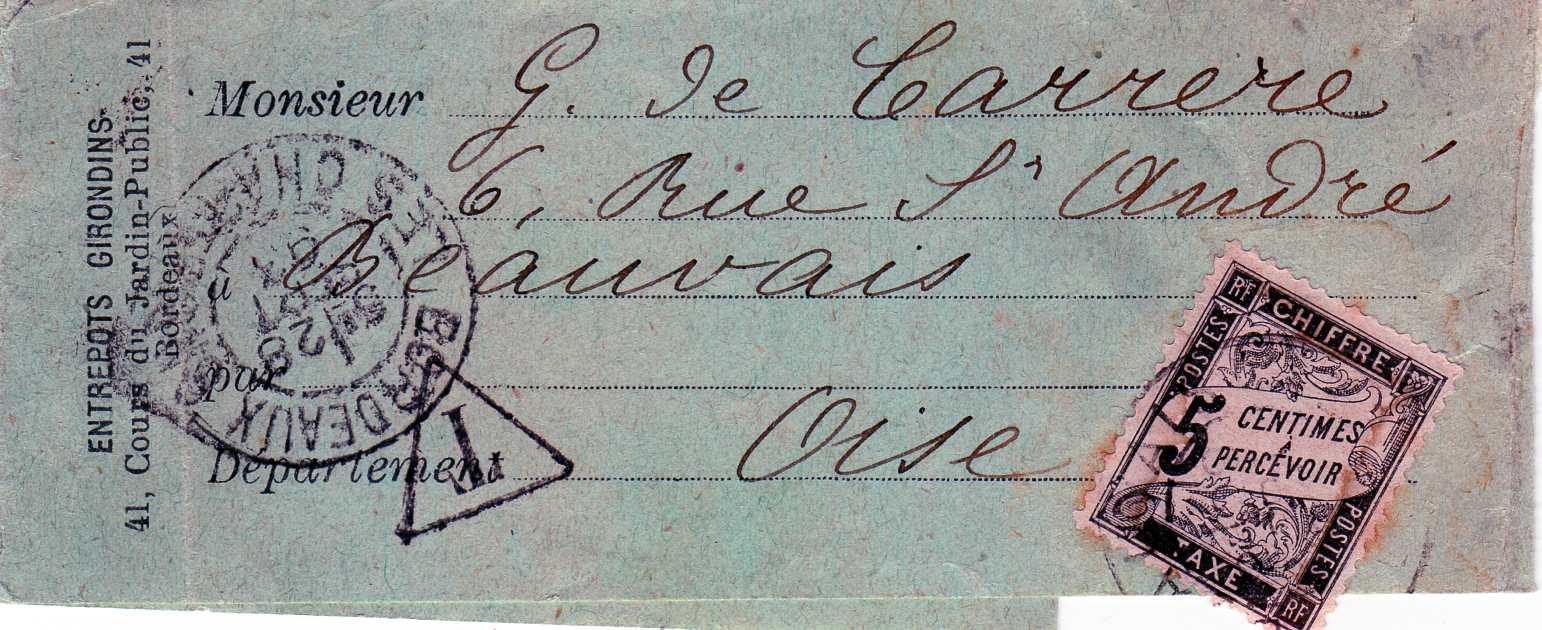 ENTREPOTS GIRONDINS
41, Cours du Jardin-Public, 41
Bordeaux
Monsieur G. de Carrere
6, Rue St André
à Beauvais
par
Département Oise
BORDEAUX
T
RF CHIFFRE
POSTES
5 CENTIMES
À
PERCEVOIR
POSTES
TAXE RF